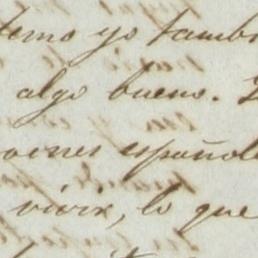 temo yo tamb
algo bueno.
ones español
vivir, lo que